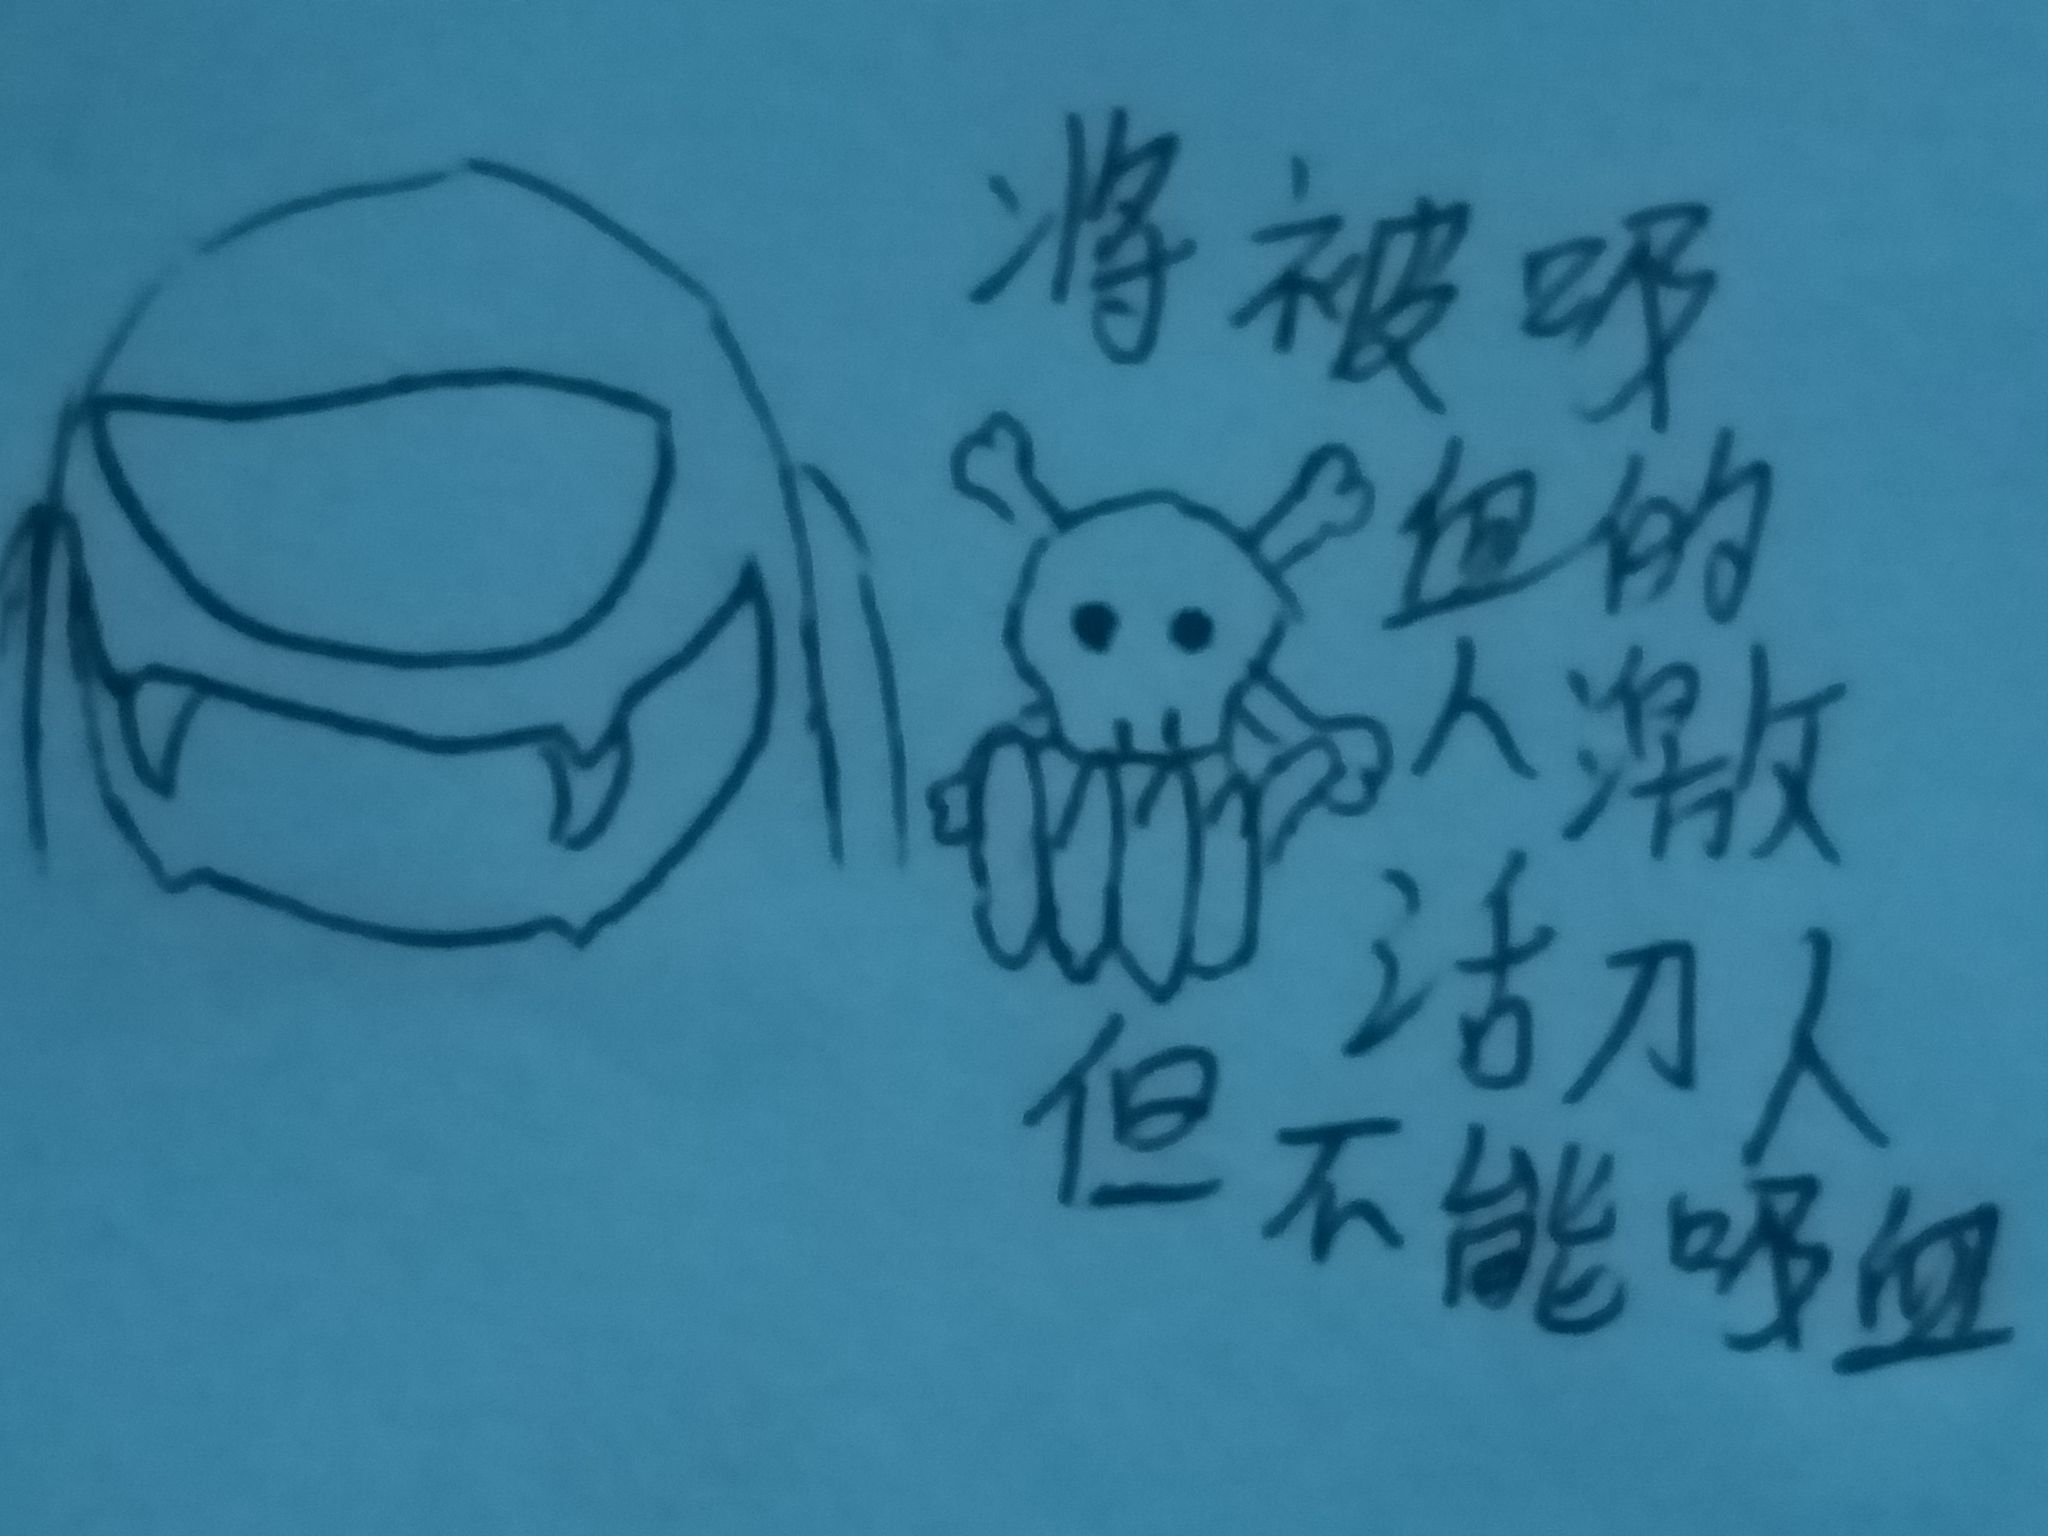 将被吸
血的
人激
活刀人
但不能吸血